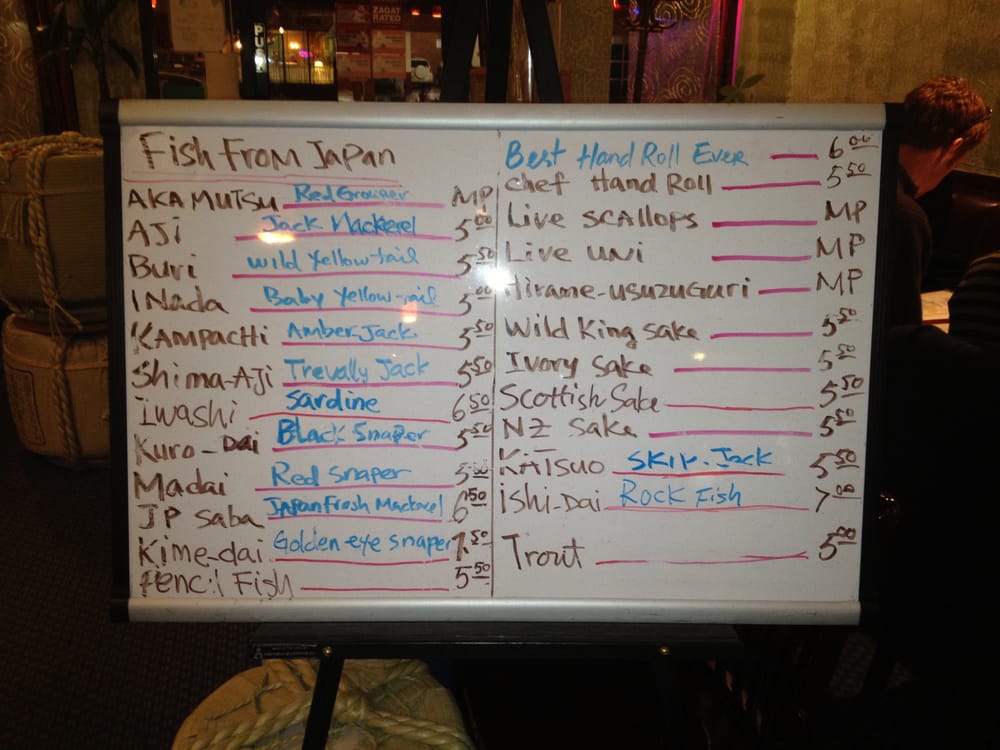 ZAGAT
RATED
PUSH
Fish From Japan
AKA MUTSU Red Grouper MP
AJi Jack Mackerel 5.00
Buri wild Yellow-tail 5.50
INada Baby Yellow-tail 5.00
KAMPACHi Amber Jack 5.50
Shima-AJi Trevally Jack 5.50
iwashi Sardine 6.50
Kuro-Dai Black Snaper 5.50
Madai Red Snaper 5.00
JP Saba Japan Fresh Mackerel 6.50
Kime-dai Golden-eye Snaper 7.50
Pencil Fish 5.50
Best Hand Roll Ever 6.00
Chef Hand Roll 5.50
Live Scallops MP
Live uni MP
Hirame-usuzuGuri MP
Wild King Sake 5.50
Ivory Sake 5.50
Scottish Sake 5.50
NZ Sake 5.50
KATSUO SKIP.Jack 5.50
iShi-Dai Rock Fish 7.00
Trout 5.00